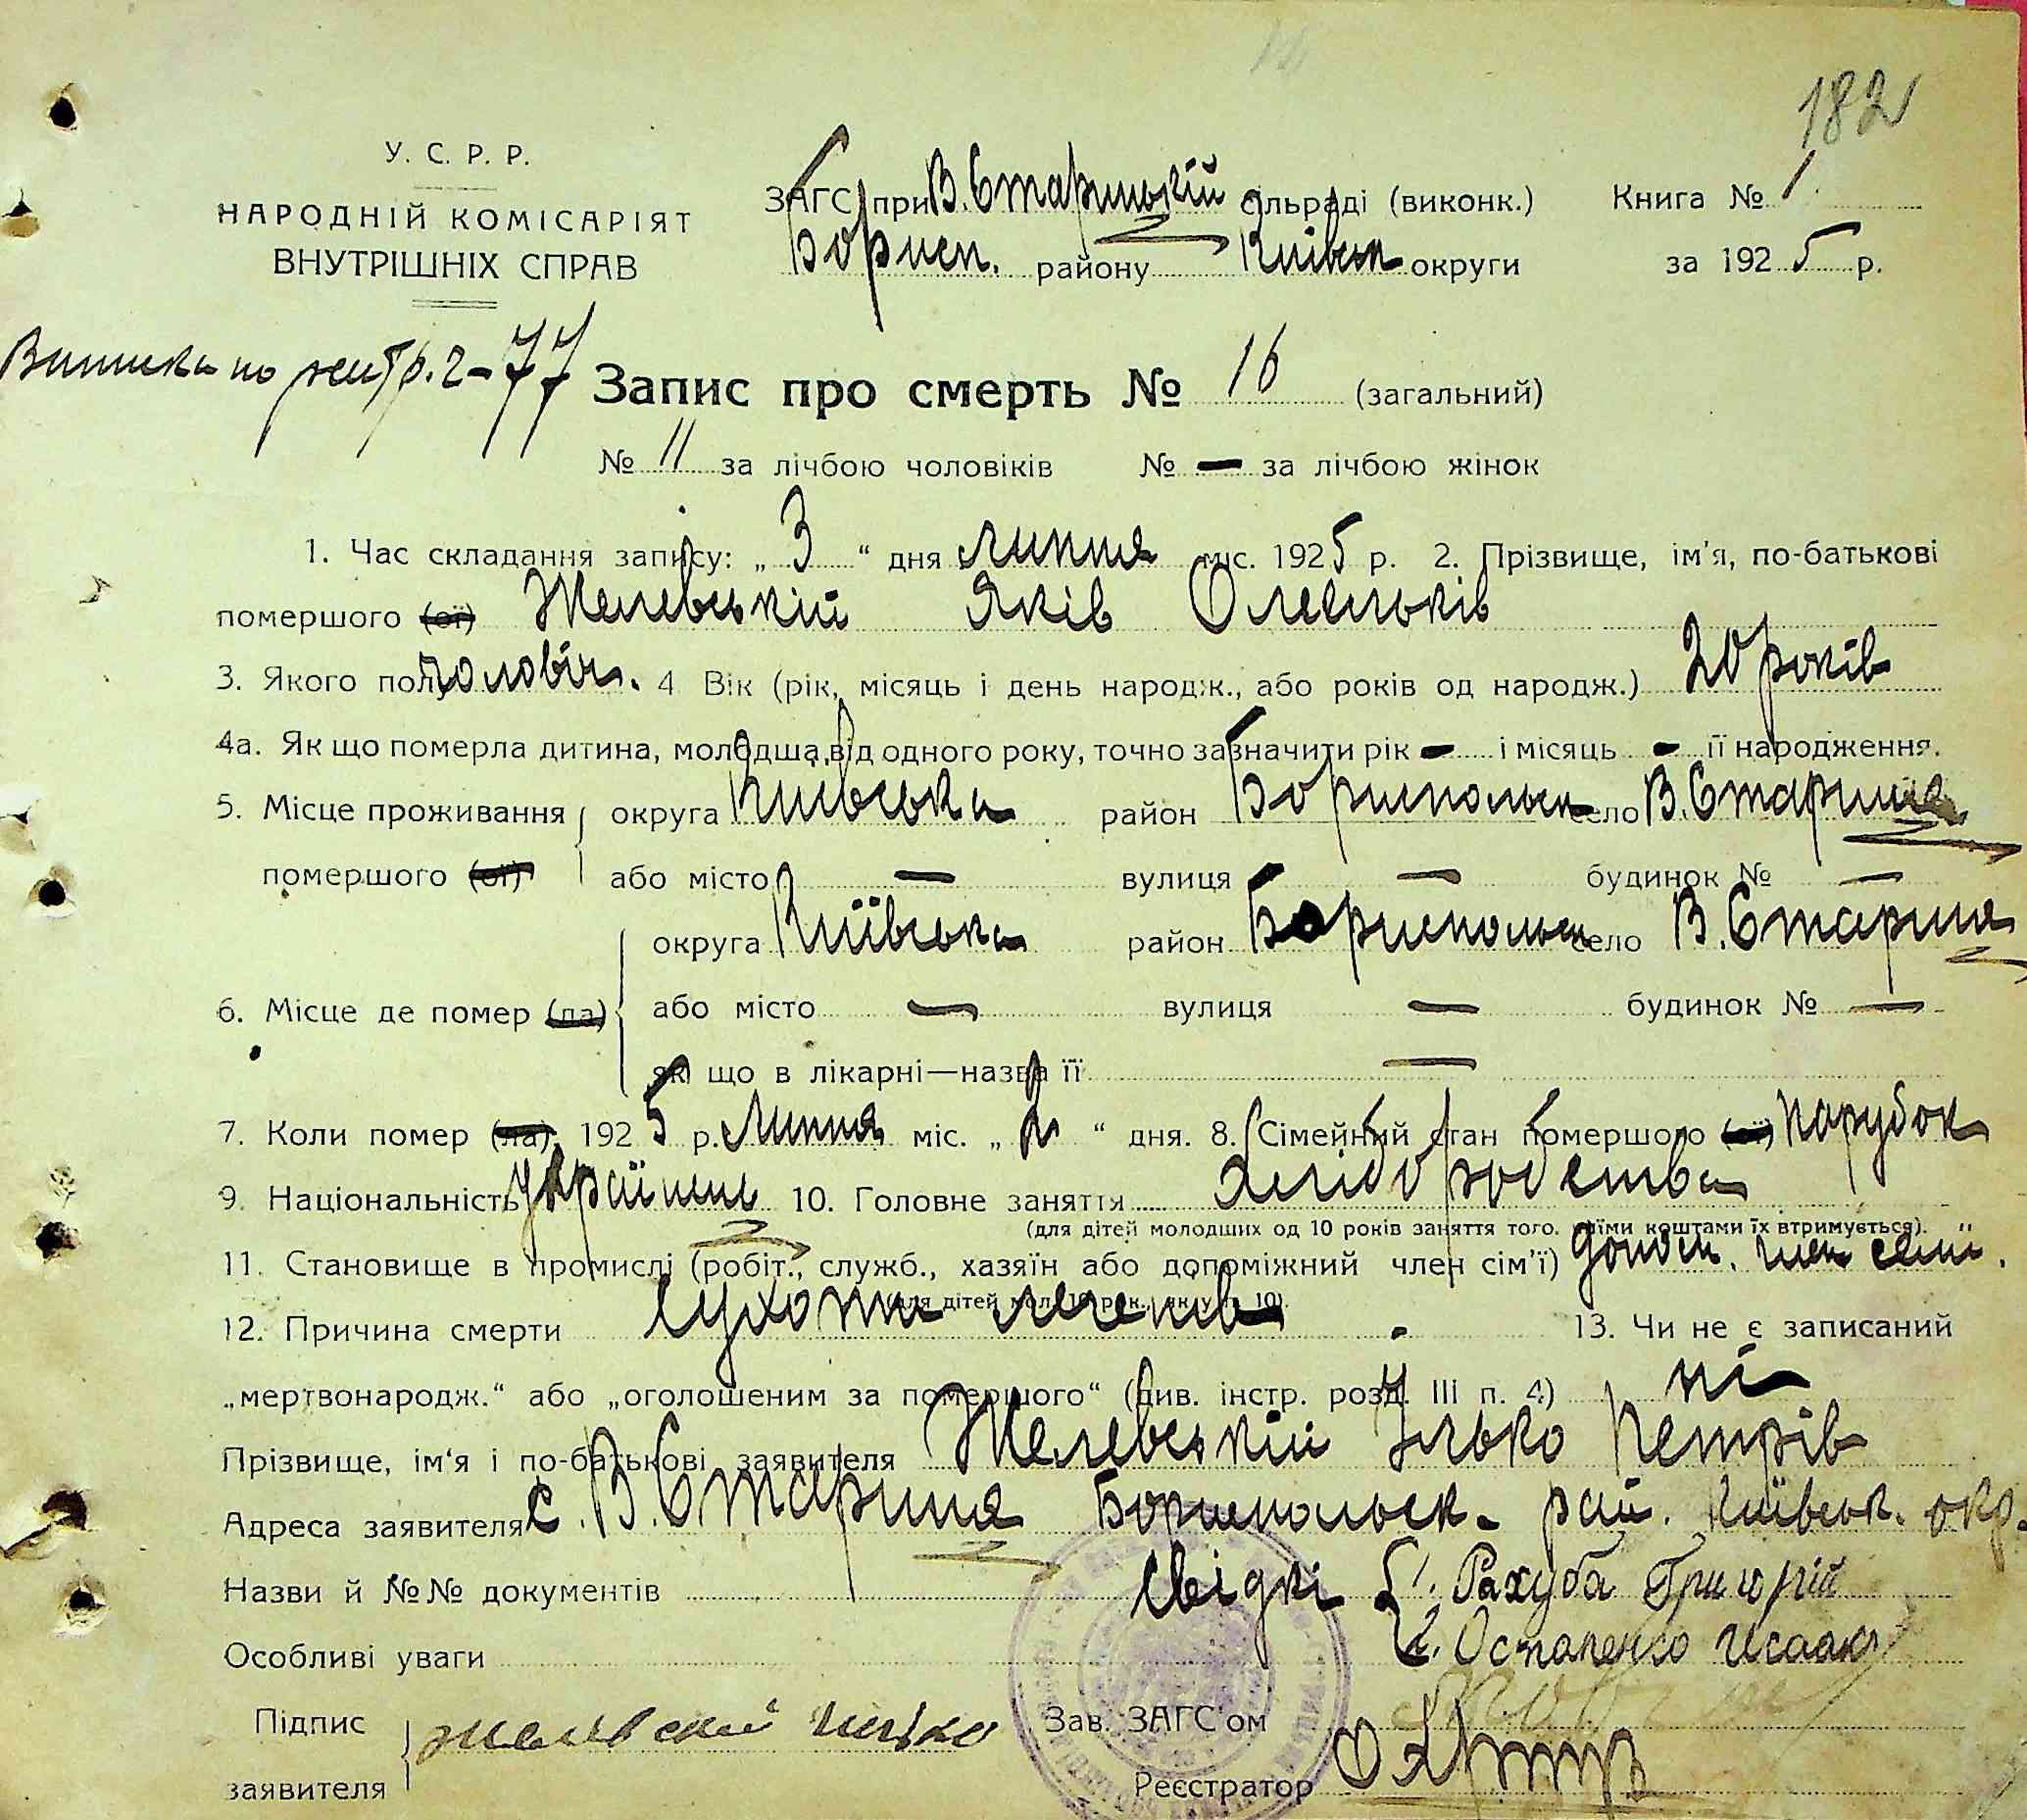 182
У. С. Р. Р.
НАРОДНІЙ КОМІСАРІЯТ
ВНУТРІШНІХ СПРАВ
ЗАГС при В. Старицькій сільраді (виконк.) Книга № 1
Борисп. району Київськ округи за 1925 р.
77
Запис про смерть № 16 (загальний)
№ 11 за лічбою чоловіків № — за лічбою жінок
1. Час складання запису: „3“ дня липня міс. 1925 р. 2. Прізвище, ім'я, по-батькові
помершого (ої) Желевській Яків Олельків
3. Якого полу чоловіч. 4 Вік (рік, місяць і день народж., або років од народж.) 20 років
4а. Як що померла дитина, молодша від одного року, точно зазначити рік — і місяць — її народження.
5. Місце проживання округа Київська район Бориспольск село В. Стариця
помершого (ої) або місто — вулиця — будинок № —
округа Київська район Бориспольск село В. Стариця
6. Місце де помер (ла) або місто — вулиця — будинок № —
як що в лікарні—назва її —
7. Коли помер (ла) 1925 р. Липня міс. „2“ дня. 8. Сімейний стан помершого (ої) парубок
9. Національність українець 10. Головне заняття хліборобства
(для дітей молодших од 10 років заняття того, чиїми коштами їх втримується).
11. Становище в промислі (робіт., служб., хазяїн або допоміжний член сім'ї) допом. член сем'ї.
(для дітей мол. 10 рок., як у п. 10).
12. Причина смерти сухоти легенів. 13. Чи не є записаний
„мертвонародж.“ або „оголошеним за помершого“ (див. інстр. розд. III п. 4) ні
Прізвище, ім'я і по-батькові заявителя Желевській Ілько Петрів
Адреса заявителя с. В. Стариця Бориспольск. рай. Київськ. окр.
Назви й №№ документів Свідкі 1. Рахуба Григорій
Особливі уваги 2. Остапенко Исаак
Підпис Желевский Илько Зав. ЗАГС'ом
заявителя Реєстратор